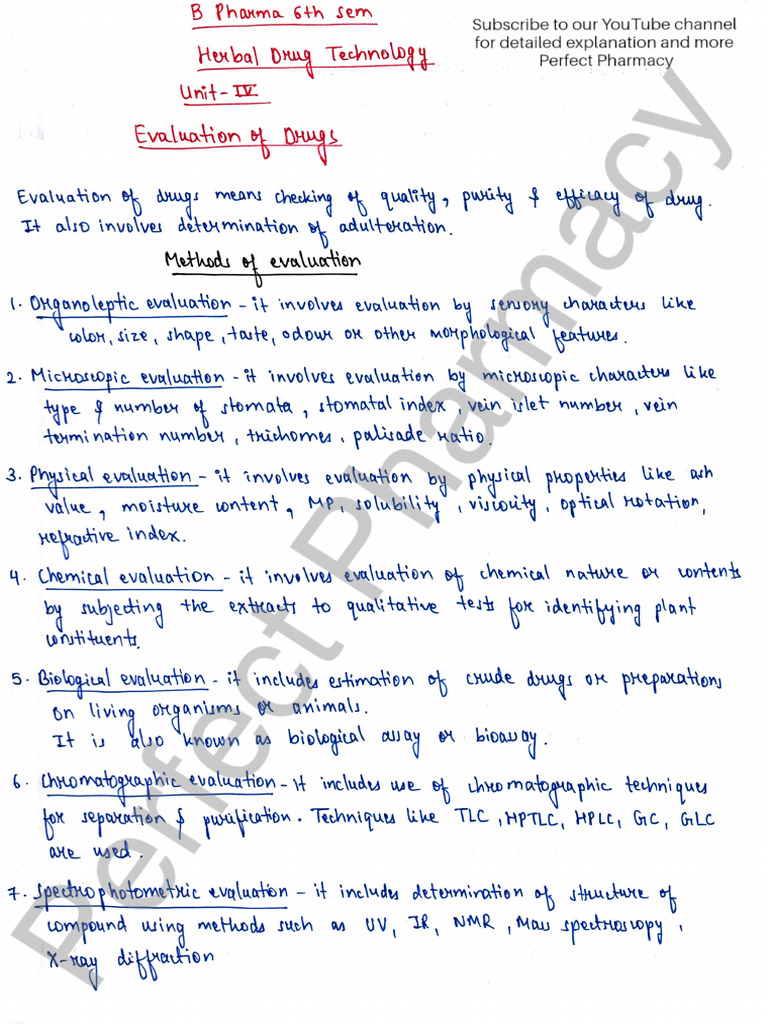 B Pharma 6th sem
Subscribe to our YouTube channel
for detailed explanation and more
Perfect Pharmacy
Herbal Drug Technology
Unit-IV
Evaluation of Drugs
Evaluation of drugs means checking of quality, purity & efficacy of drug.
It also involves determination of adulteration.
Methods of evaluation
1. Organoleptic evaluation - it involves evaluation by sensory characters like
color, size, shape, taste, odour or other morphological features.
2. Microscopic evaluation - it involves evaluation by microscopic characters like
type & number of stomata, stomatal index, vein islet number, vein
termination number, trichomes, palisade ratio.
3. Physical evaluation - it involves evaluation by physical properties like ash
value, moisture content, MP, solubility, viscocity, optical rotation,
refractive index.
4. Chemical evaluation - it involves evaluation of chemical nature or contents
by subjecting the extracts to qualitative tests for identifying plant
constituents.
5. Biological evaluation - it includes estimation of crude drugs or preparations
on living organisms or animals.
It is also known as biological assay or bioassay.
6. Chromatographic evaluation - it includes use of chromatographic techniques
for separation & purification. Techniques like TLC, HPTLC, HPLC, GC, GLC
are used.
7. Spectrophotometric evaluation - it includes determination of structure of
compound using methods such as UV, IR, NMR, Mass spectroscopy,
X-ray diffraction
Perfect Pharmacy